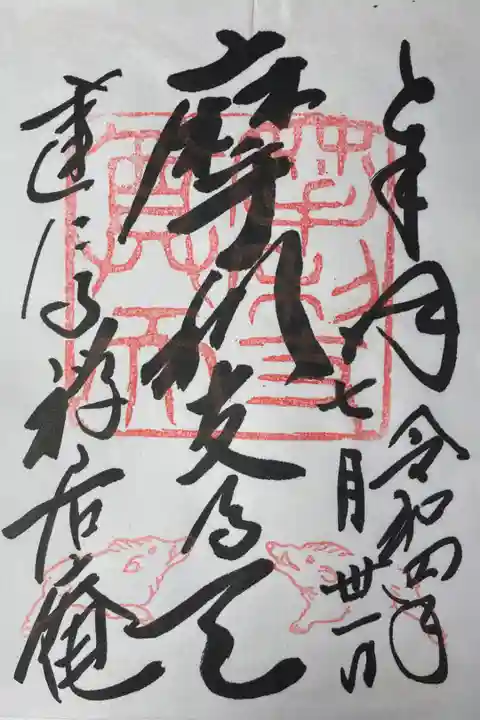 奉拝 令和四年
七月卅一日
摩利支尊天
建仁寺禅居庵